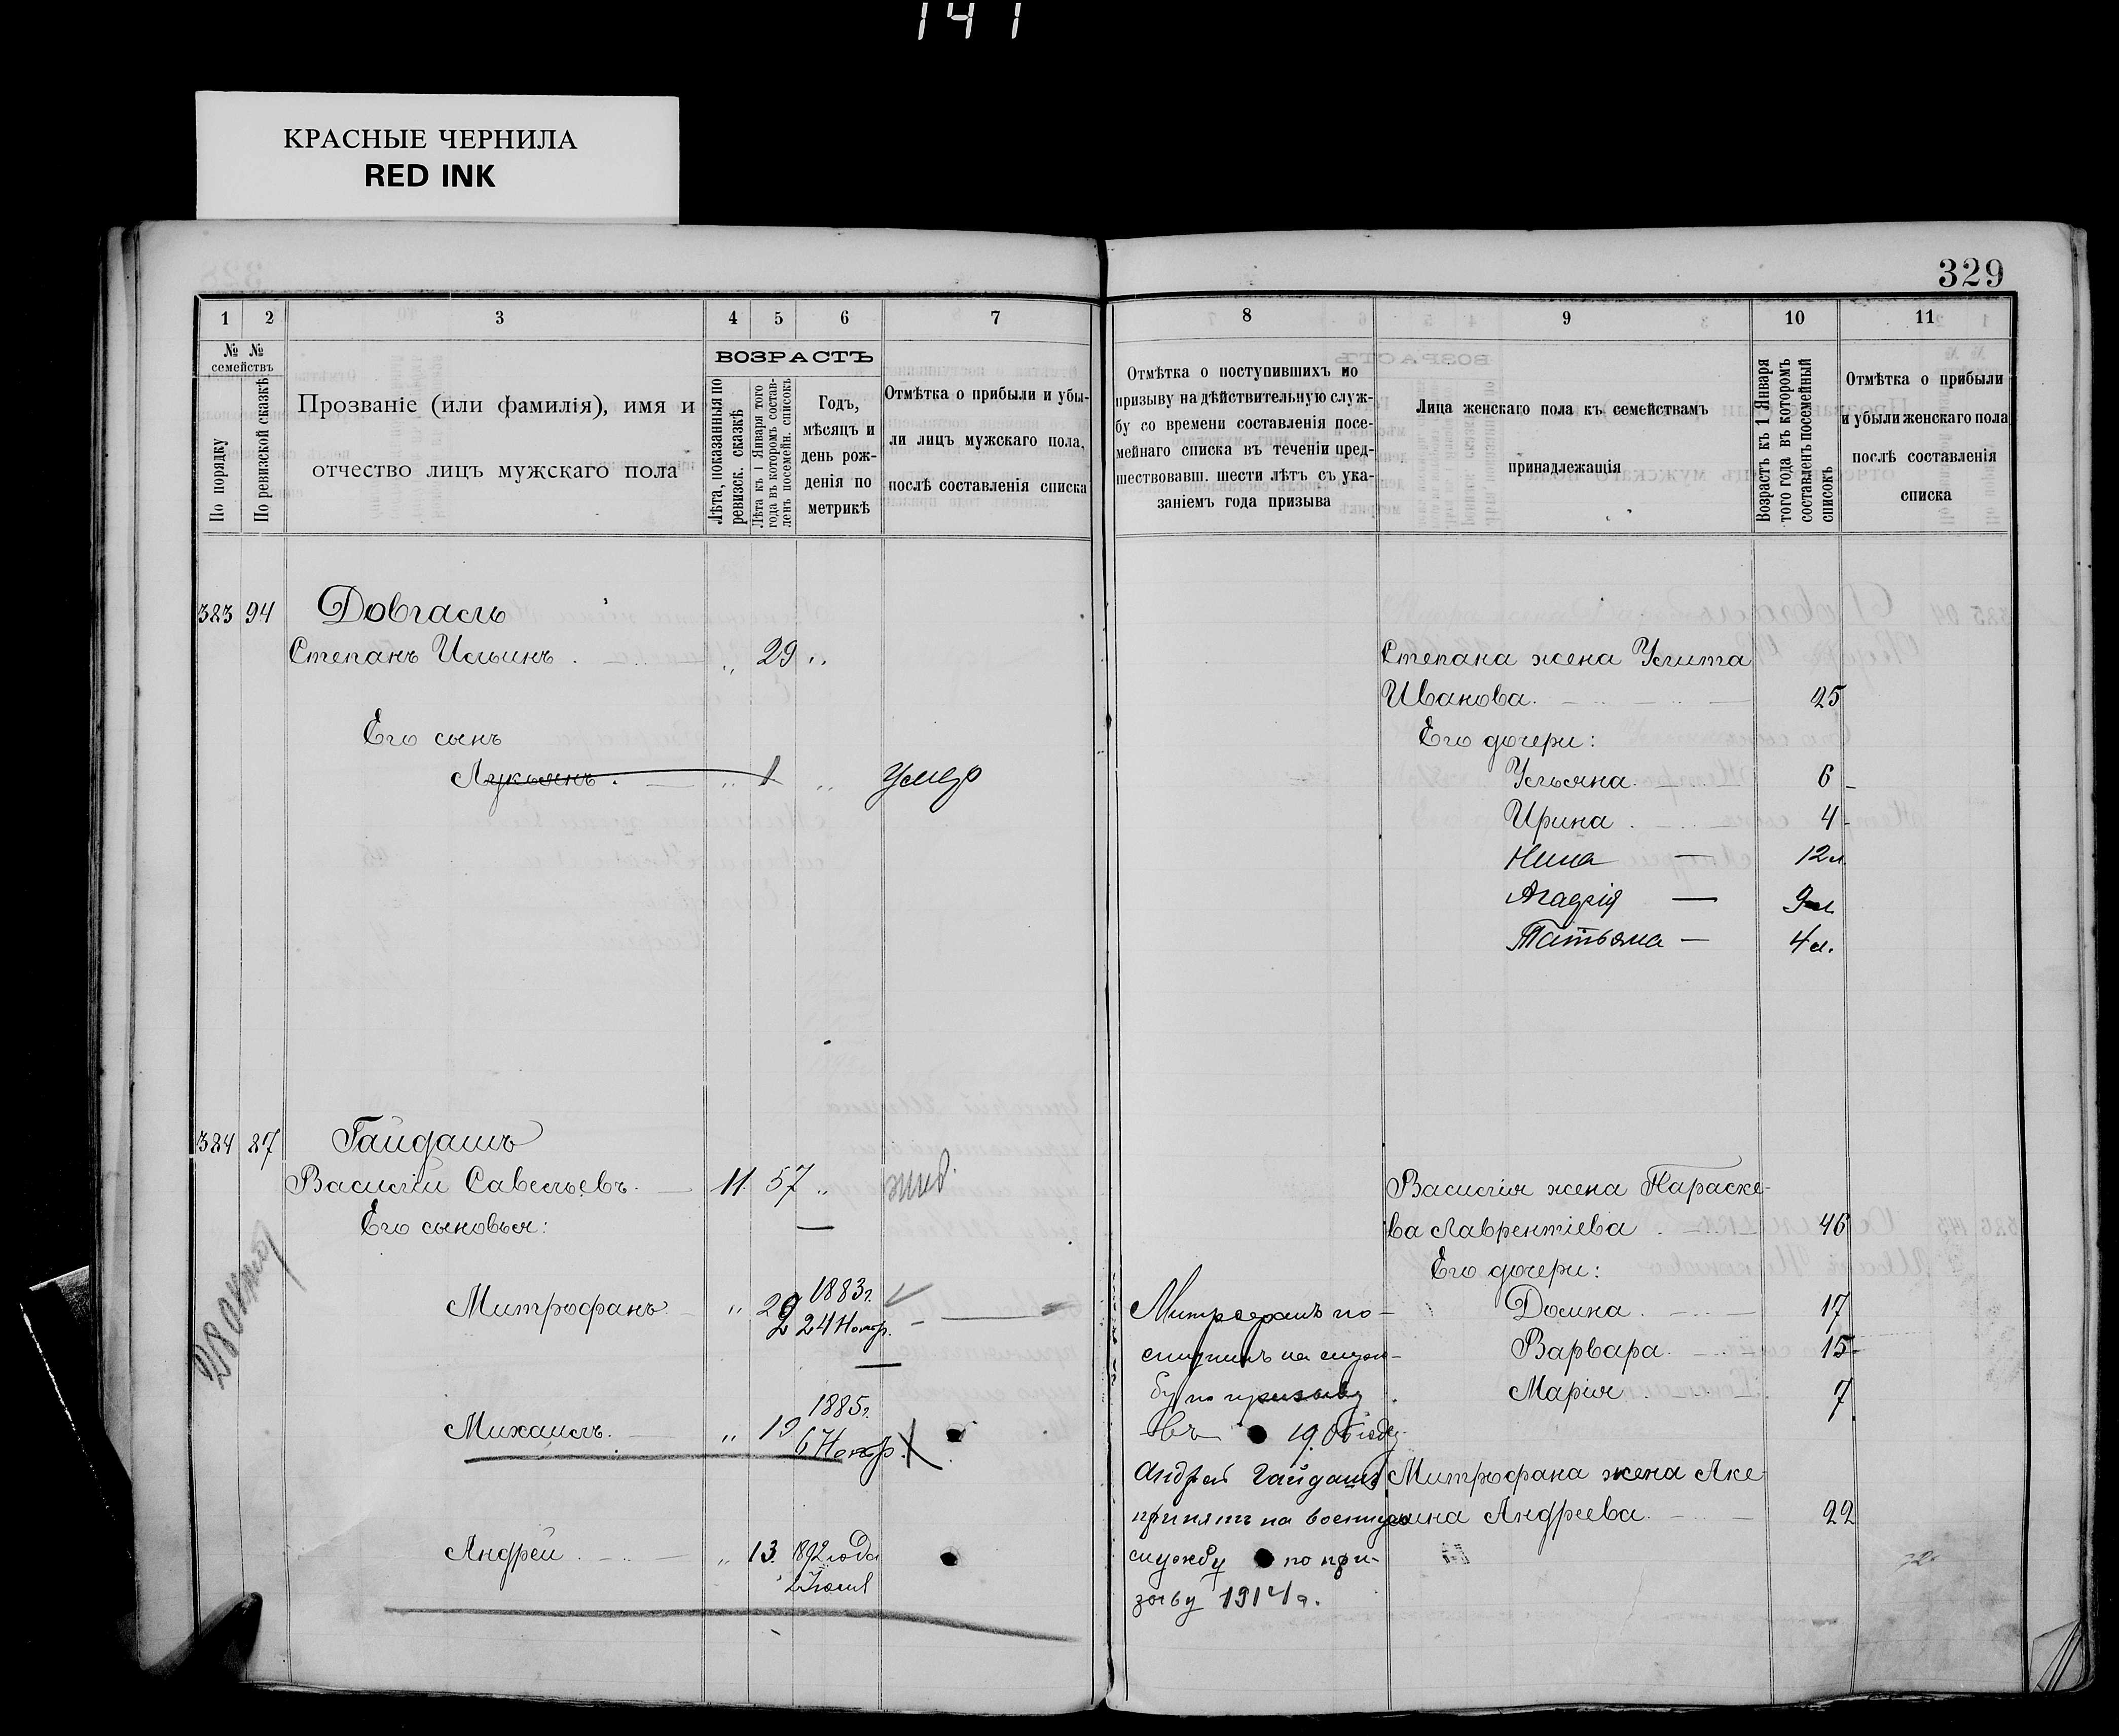 141
КРАСНЫЕ ЧЕРНИЛА
RED INK
329
1 2 3 4 5 6 7
№ № семействъ
По порядку
По ревизской сказкѣ
Прозваніе (или фамилія), имя и
отчество лицъ мужскаго пола
ВОЗРАСТЪ
Лѣта, показанныя по
ревизск. сказкѣ
Лѣта къ 1 Января того
года въ которомъ состав-
ленъ посемейн. списокъ
Годъ,
мѣсяцъ и
день рож-
денія по
метрикѣ
Отмѣтка о прибыли и убы-
ли лицъ мужскаго пола,
послѣ составленія списка
383 94 Довгаль
Степанъ Ильинъ. „ 29 „
Его сынъ
Лукьянъ. „ 1 „ умер
384 87 Гайдашъ
Василій Савельевъ. 11. 57 „
Его сыновья:
Митрофанъ „ 22 1883г.
24 Ноябр.
Михаилъ. „ 19 1885г.
6 Ноябр.
Андрей. „ 13. 892 года
8 9 10 11
Отмѣтка о поступившихъ по
призыву на дѣйствительную служ-
бу со времени составленія посе-
мейнаго списка въ теченіи пред-
шествовавш. шести лѣтъ съ ука-
заніемъ года призыва
Лица женскаго пола къ семействамъ
принадлежащія
Возрастъ къ 1 Января
того года въ которомъ
составленъ посемейный
списокъ
Отмѣтка о прибыли
и убыли женскаго пола
послѣ составленія
списка
Степана жена Улита
Иванова. 25
Его дочери:
Ульяна. 6
Ирина. 4
12 л
9 л
Татьяна — 4 л.
Василія жена Параске-
ва Лаврентіева. 46
Его дочери:
Домна. 17
Варвара. 15
Марія. 7
Митрофана жена Аке
лина Андреева. 22
Митрофанъ по-
ступилъ на служ-
бу по призыву
въ 1906 году.
Андрей Гайдашъ
принятъ на военную
службу по при-
зыву 1914 г.